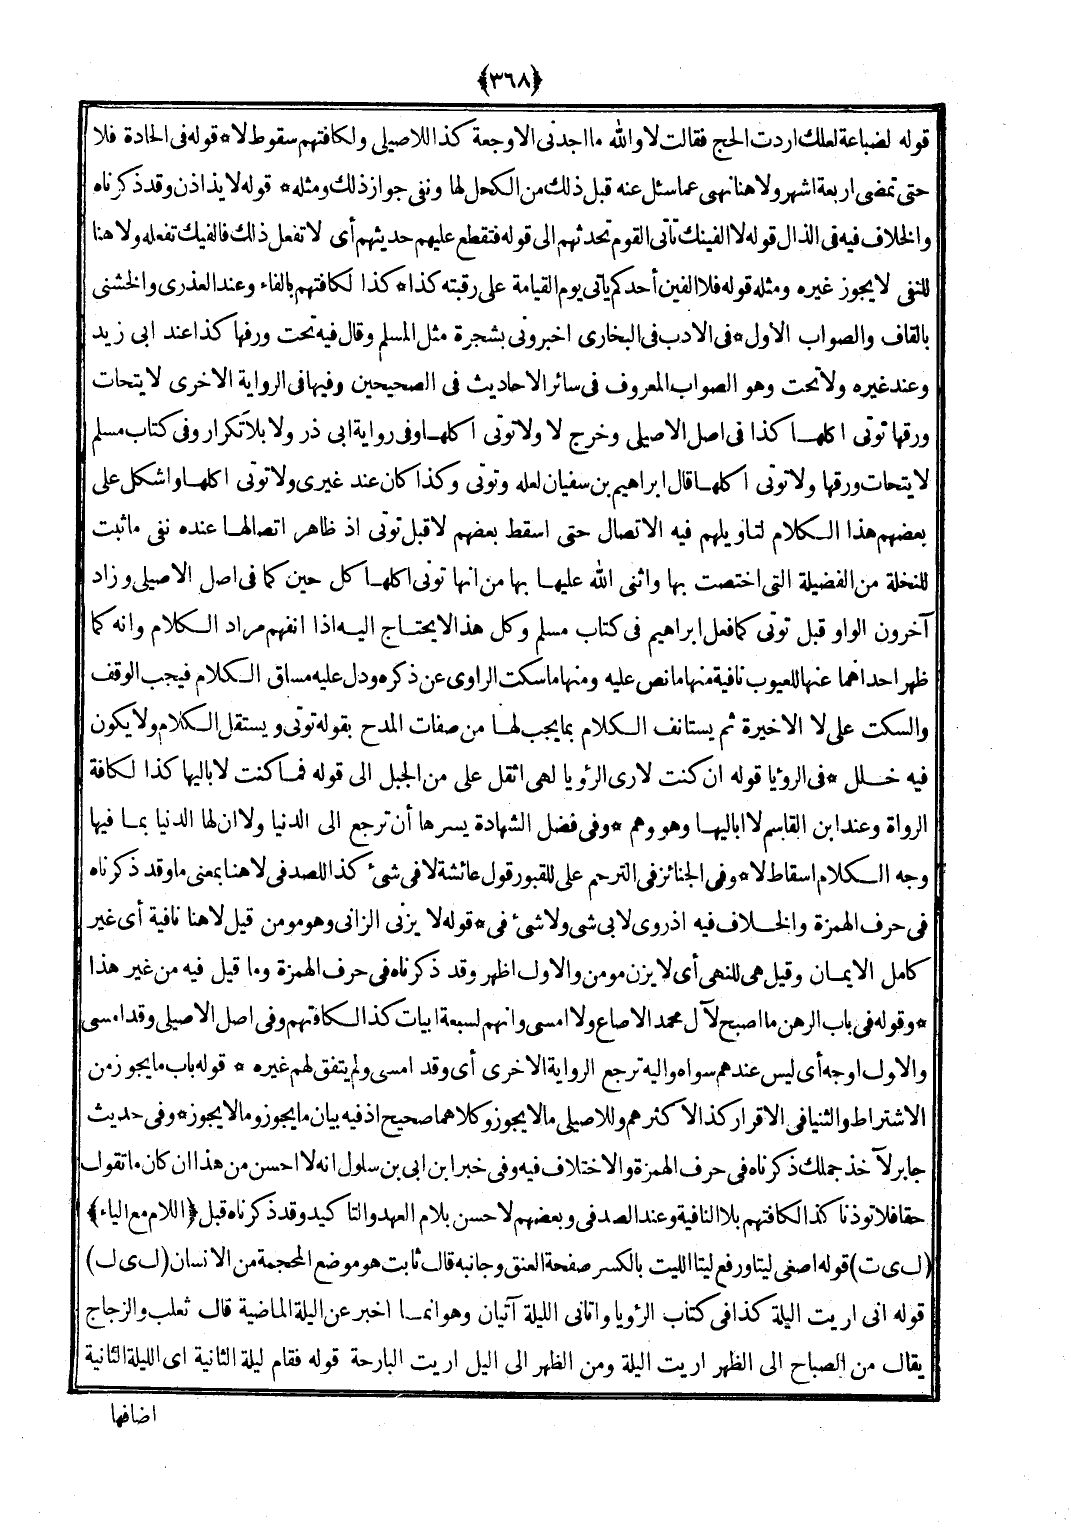 ﴿٣٦٨﴾
قوله لضباعة لعلك اردت الحج فقالت لا والله ما اجدنى الا وجعة كذا للاصيلى ولكافتهم سقوط لا * قوله فى الحادة فلا
حتى تمضى اربعة اشهر ولا هنا نهى عما سئل عنه قبل ذلك من الكحل لها ونفى جواز ذلك ومثله * قوله لا يذاذن وقد ذكرناه
والخلاف فيه فى الذال قوله لا الفينك تأتى القوم تحدثهم الى قوله فتقطع عليهم حديثهم أى لا تفعل ذلك فالفيك تفعله ولا هنا
للنفى لا يجوز غيره ومثله قوله فلا الفين أحدكم ياتى يوم القيامة على رقبته كذا * كذا لكافتهم بالفاء وعند العذرى والخشنى
بالقاف والصواب الاول * فى الادب فى البخارى اخبرونى بشجرة مثل المسلم وقال فيه تحت ورقها كذا عند ابى زيد
وعند غيره ولا تحت وهو الصواب المعروف فى سائر الاحاديث فى الصحيحين وفيها فى الرواية الاخرى لا يتحات
ورقها توتى اكلهـا كذا فى اصل الاصيلى وخرج لا ولا توتى اكلهـا وفى رواية ابى ذر ولا بلا تكرار وفى كتاب مسلم
لا يتحات ورقها ولا توتى اكلهـا قال ابراهيم بن سفيان لعله وتوتى وكذا كان عند غيرى ولا توتى اكلهـا واشكل على
بعضهم هذا الـكلام لتاويلهم فيه الاتصال حتى اسقط بعضهم لا قبل توتى اذ ظاهر اتصالهـا عنده نفى ما ثبت
للنخلة من الفضيلة التى اختصت بها واثنى الله عليهـا بها من انها توتى اكلهـا كل حين كما فى اصل الاصيلى وزاد
آخرون الواو قبل توتى كما فعل ابراهيم فى كتاب مسلم وكل هذا لا يحتـاج اليـه اذا انفهم مراد الـكلام وانه كما
ظهر احداهما عنها للعيوب نافية منها ما نص عليه ومنها ما سكت الراوى عن ذكره ودل عليه مساق الـكلام فيجب الوقف
والسكت على لا الاخيرة ثم يستانف الـكلام بما يجب لهـا من صفات المدح بقوله توتى ويستقل الـكلام ولا يكون
فيه خـلل * فى الرؤيا قوله ان كنت لارى الرؤيا لهى اثقل على من الجبل الى قوله فمـا كنت لاباليها كذا لكافة
الرواة وعند ابن القاسم لا اباليهـا وهو وهم * وفى فضل الشهادة يسرها أن ترجع الى الدنيا ولا ان لها الدنيا بمـا فيها
وجه الـكلام اسقاط لا * وفى الجنائز فى الترحم على القبور قول عائشة لا فى شئ كذا للصدفى لا هنا بمعنى ما وقد ذكرناه
فى حرف الهمزة والخـلاف فيه اذ روى لا بى شى ولا شئ فى * قوله لا يزنى الزانى وهو مومن قيل لا هنا نافية أى غير
كامل الايمـان وقيل هى للنهى أى لا يزن مومن والاول اظهر وقد ذكرناه فى حرف الهمزة وما قيل فيه من غير هذا
* وقوله فى باب الرهن ما اصبح لآل محمد الا صاع ولا امسى وانهم لسبعة ابيات كذا لـكافتهم وفى اصل الاصيلى وقد امسى
والاول اوجه أى ليس عندهم سواه واليه ترجع الرواية الاخرى أى وقد امسى ولم يتفق لهم غيره * قوله باب ما يجوز من
الاشتراط والثنيا فى الاقرار كذا لاكثرهم وللاصيلى ما لا يجوز وكلاهما صحيح اذ فيه بيان ما يجوز وما لا يجوز * وفى حديث
جابر لآخذ جملك ذكرناه فى حرف الهمزة والاختلاف فيه وفى خبر ابن ابى بن سلول انه لا احسن من هذا ان كان ما تقول
حقا فلا توذنا كذا لكافتهم بلا النافية وعند الصدفى وبعضهم لاحسن بلام العهد والتاكيد وقد ذكرناه قبل ﴿اللام مع الياء﴾
(ل ى ت) قوله اصغى ليتا ورفع ليتا الليت بالكسر صفحة العنق وجانبه قال ثابت هو موضع المحجمة من الانسان (ل ى ل)
قوله انى اريت اليلة كذا فى كتاب الرؤيا واتانى الليلة آتيان وهو انمـا اخبر عن اليلة الماضية قال ثعلب والزجاج
يقال من الصباح الى الظهر اريت اليلة ومن الظهر الى اليل اريت البارحة قوله فقام ليلة الثانية اى الليلة الثانية
اضافها